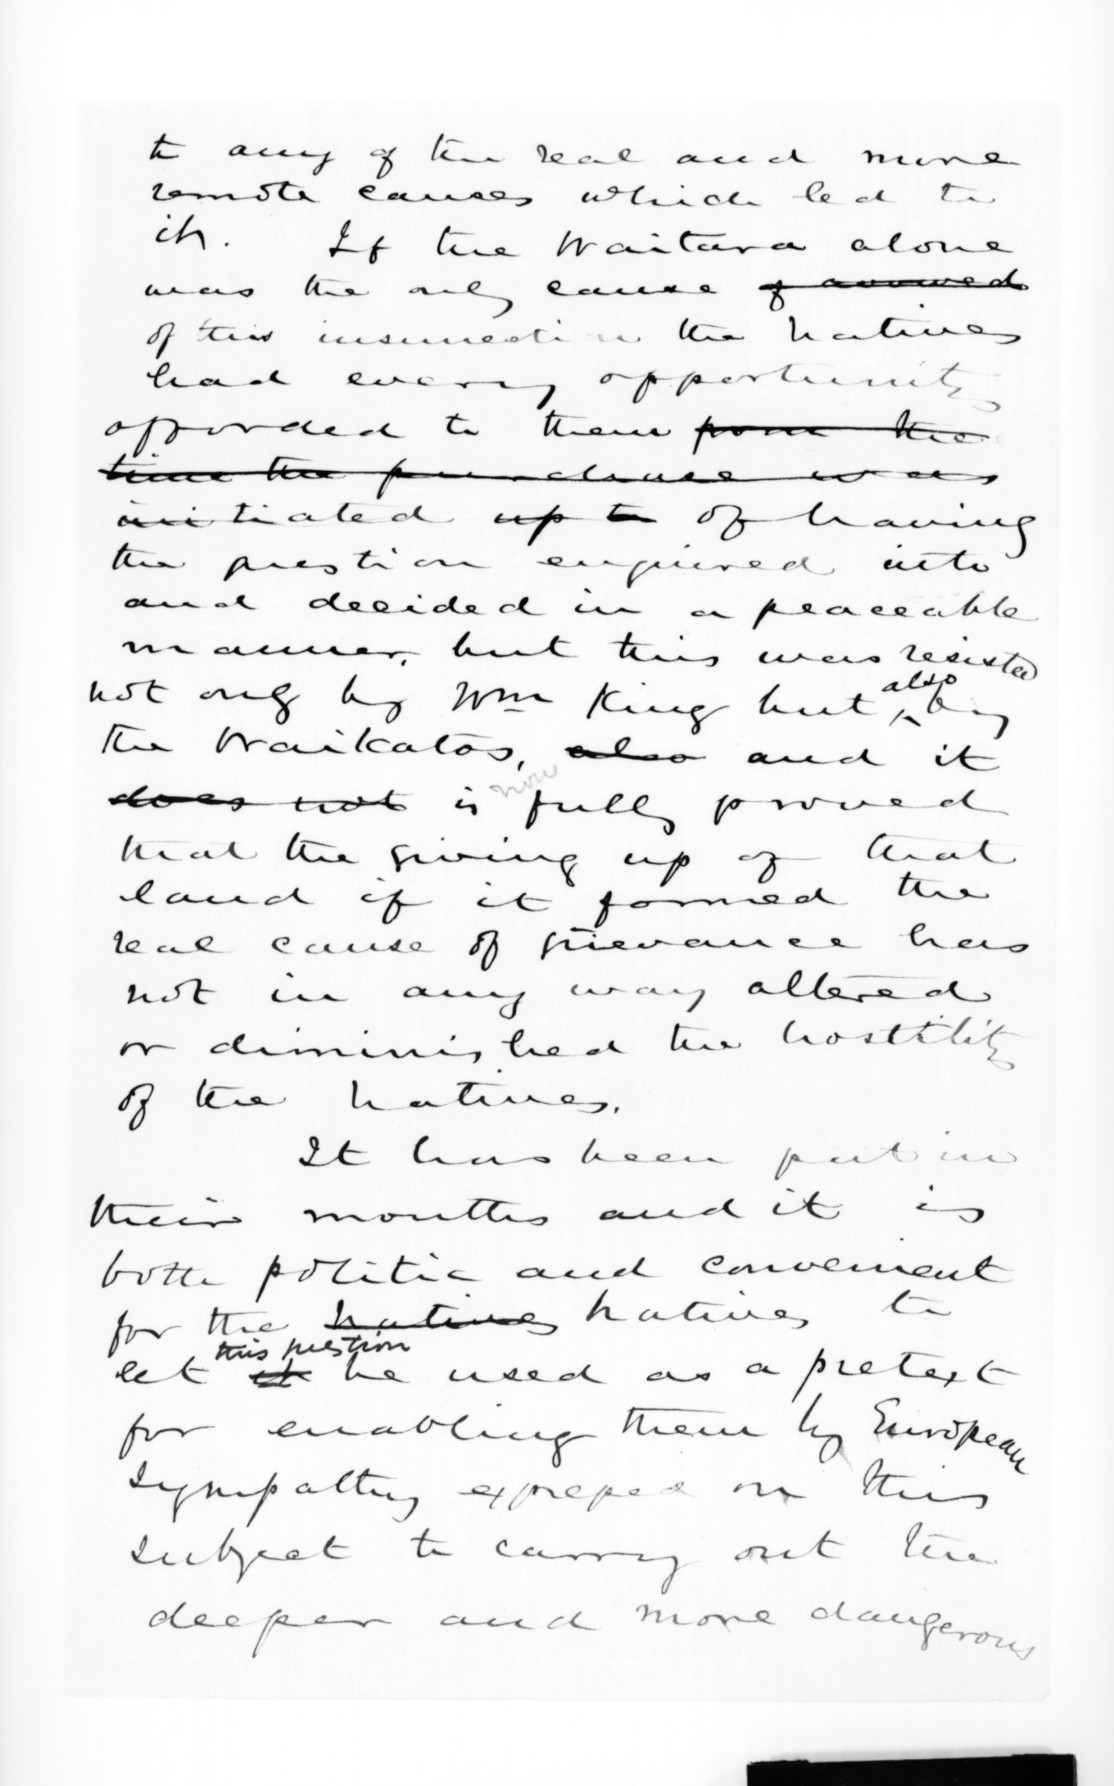 to any of the real and more
remote causes which led to
it. If the Waitara alone
was the only cause
of this insurrection the Natives
had every opportunity
afforded to them from the
time the purchase was
initiated up to of having
the question enquired into
and decided in a peaceable
manner, but this was resisted
not only by Wm King but also by
the Waikatos, also and it
does not is now fully proved
that the giving up of that
land if it formed the
real cause of grievance has
not in any way altered
or diminished the hostility
of the Natives.
It has been put in
their mouths and it is
both politic and convenient
for the Natives Natives to
let it this question be used as a pretext
for enabling them by European
sympathy expressed on this
subject to carry out the
deeper and more dangerous